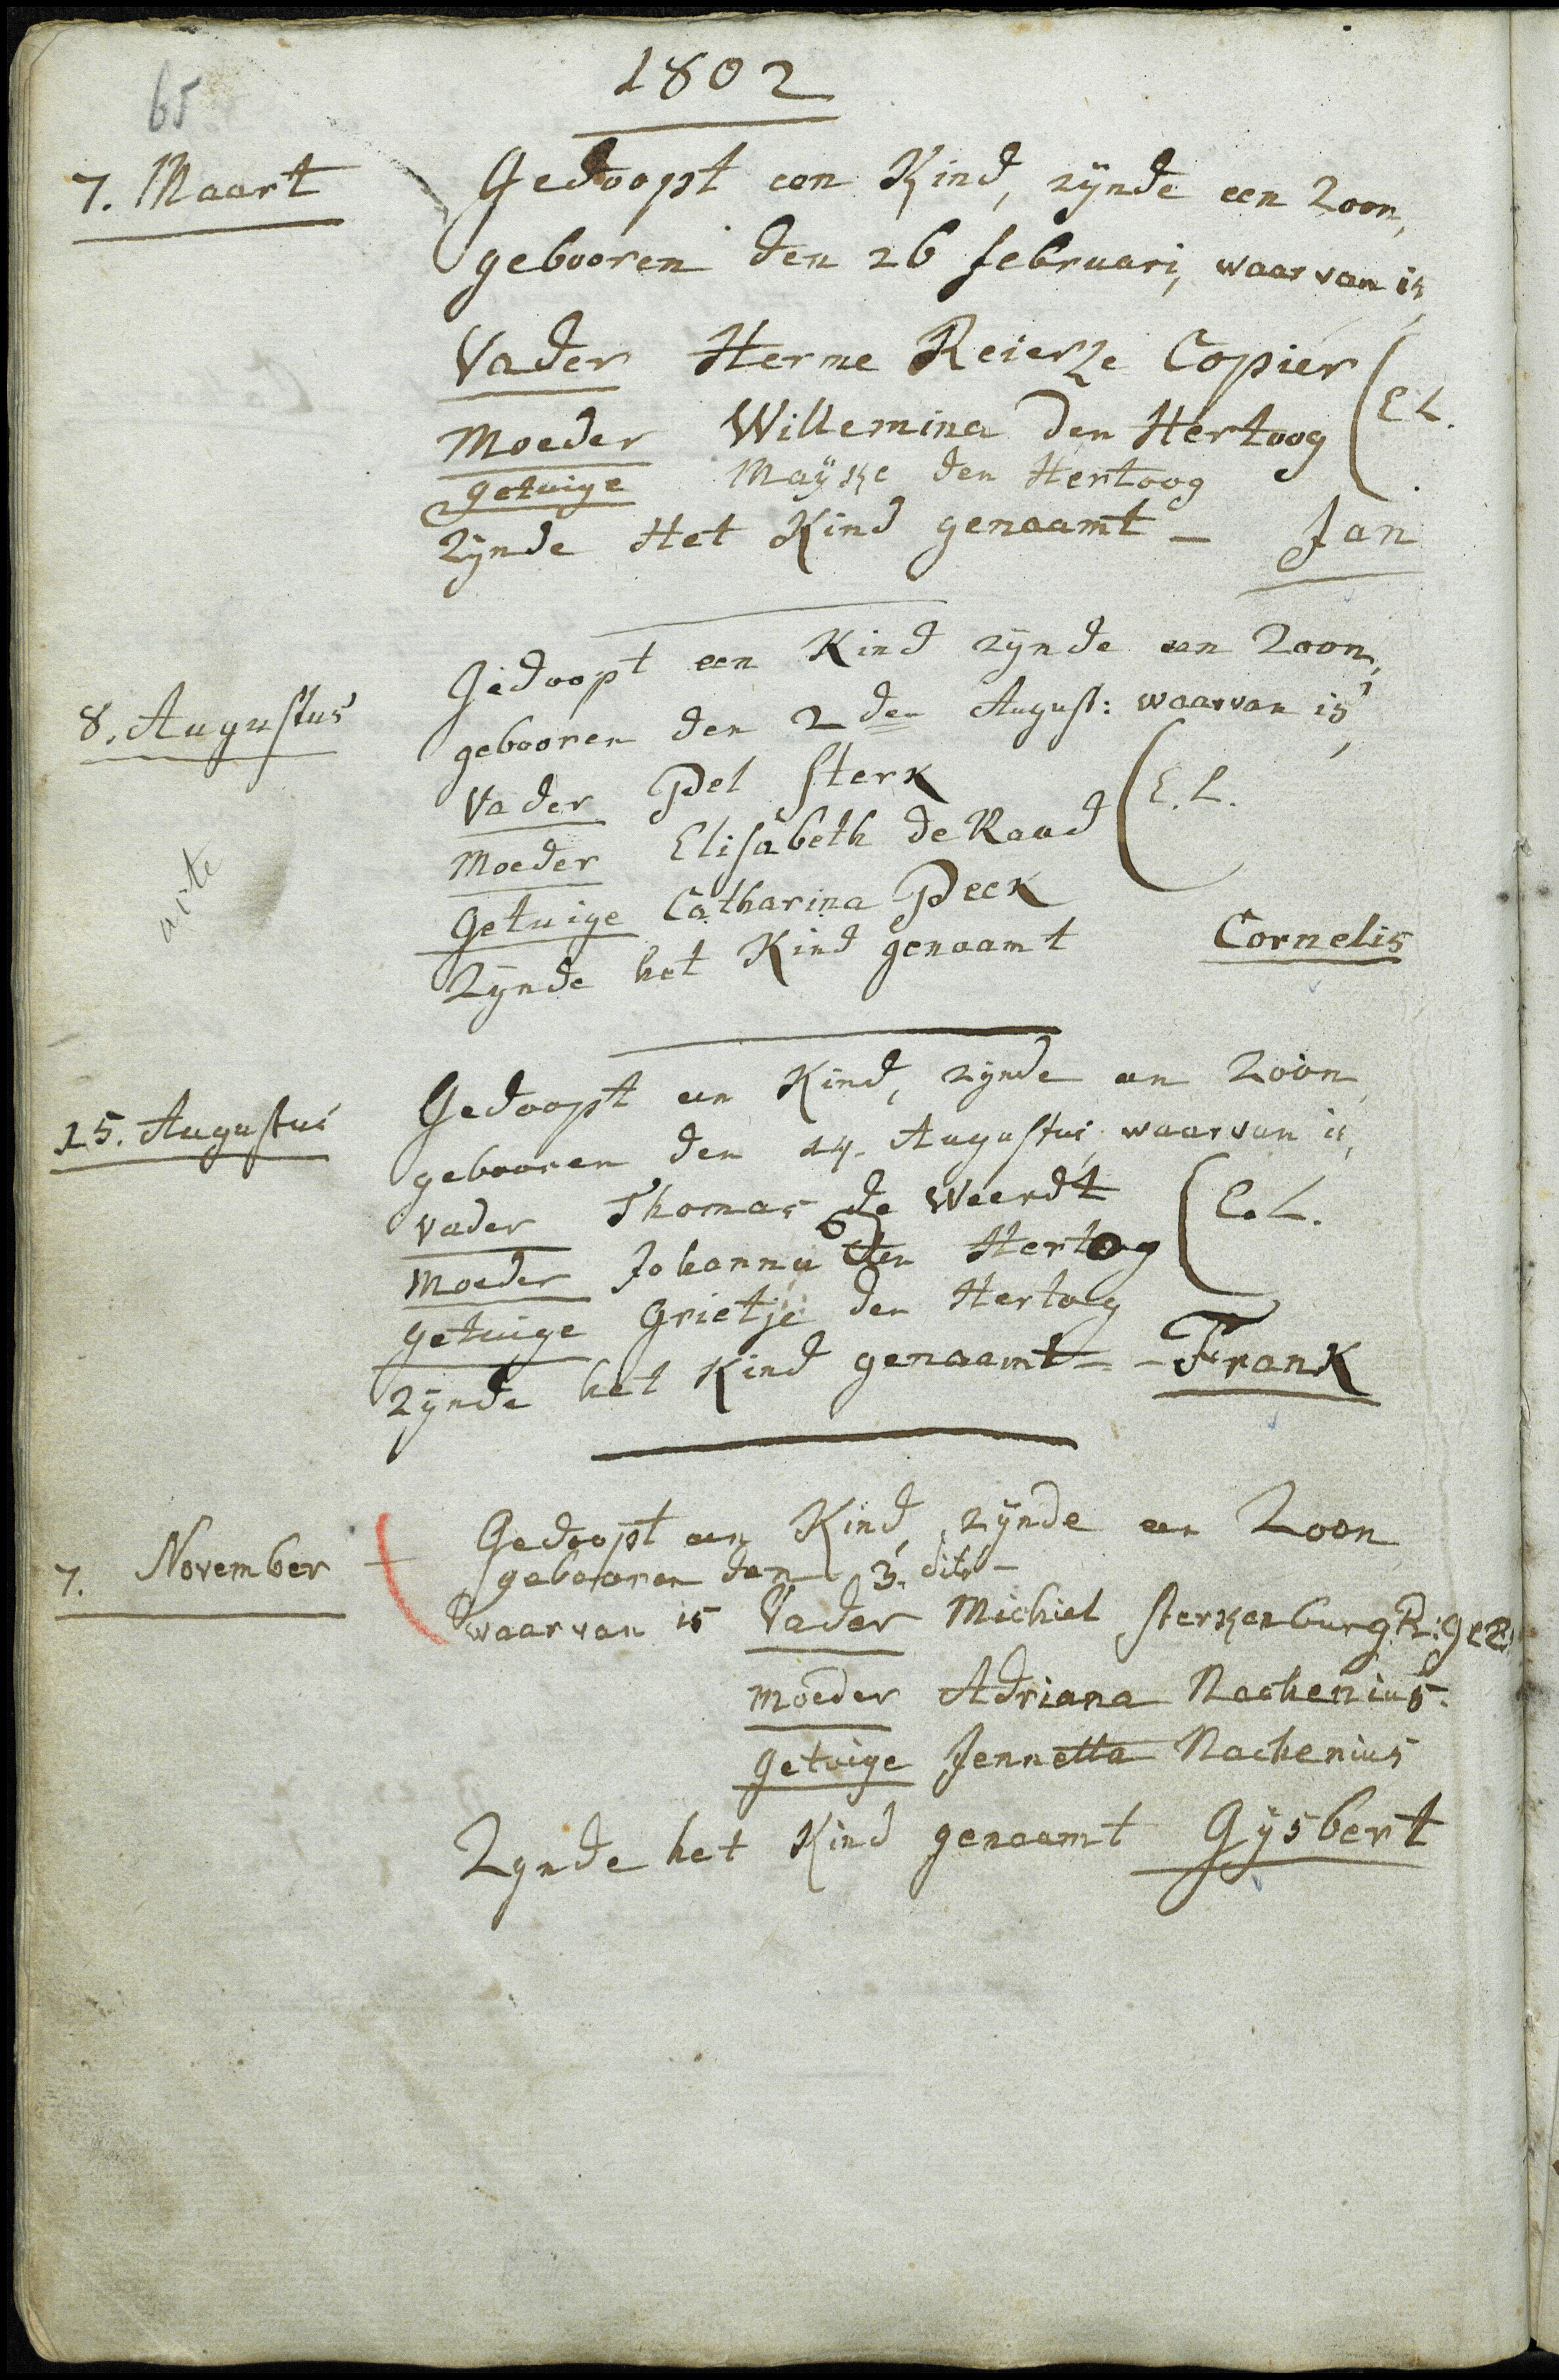 65
1802
7. Maart
Gedoopt een Kind, zÿnde een Zoon,
gebooren den 26 februari, waar van is,
Vader Herme Reierze Copier
E L.
Moeder Willemina den Hertoog
getuige Maÿke den Hertoog
Zÿnde Het Kind genaamt – Jan
8. Augustus
Gedoopt een Kind zÿnde een Zoon,
gebooren den 2 den August: waarvan is,
Vader Pel Sterk
E. L.
Moeder Elisabeth de Raad
Getuige Catharina Peek
Zÿnde het Kind genaamt Cornelis
15. Augustus
Gedoopt een Kind, zÿnde een Zoon
gebooren den 14. Augustus, waarvan is,
Vader Thomas de Weerdt
E. L.
Moeder Johanna den Hertog
getuige Grietje den Hertog
zÿnde het Kind genaamt – – Frank
7. November
Gedoopt een Kind, zÿnde een Zoon
gebooren den 3. dito –
waar van is Vader Michiel Sterkenburg R: gez:
moeder Adriana Nachenius.
Getuige Jennetta Nachenius
Zynde het Kind genaamt Gÿsbert